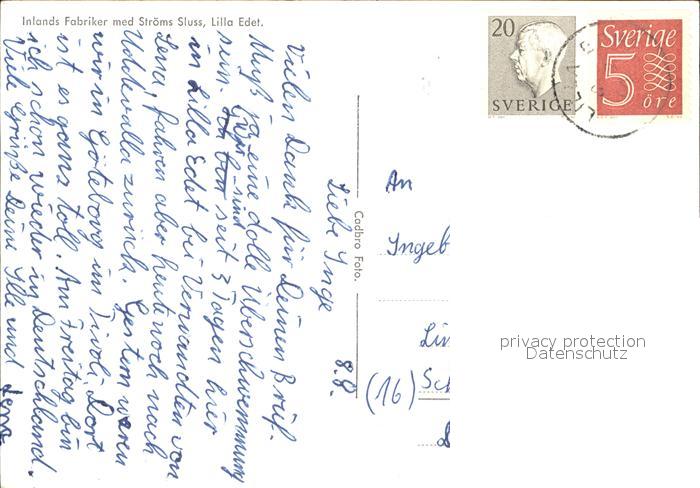 Inlands Fabriker med Ströms Sluss, Lilla Edet.
20
SVERIGE
Sverige
5
öre
Cadbro Foto.
8.8.
Liebe Inge
Vielen Dank für Deinen Brief.
Muß ja eine dolle Überschwemmung
sein. Wir sind seit 3 Tagen hier
in Lilla Edet bei Verwandten von
Lena, fahren aber heute noch nach
Uddevalla zurück. Gestern waren
wir in Göteborg im Tivoli. Dort
ist es ganz toll. Am Freitag bin
ich schon wieder in Deutschland.
Viele Grüße Deine Ille und Lena
An
Ingeb
Lin
(16) Sch
privacy protection
Datenschutz